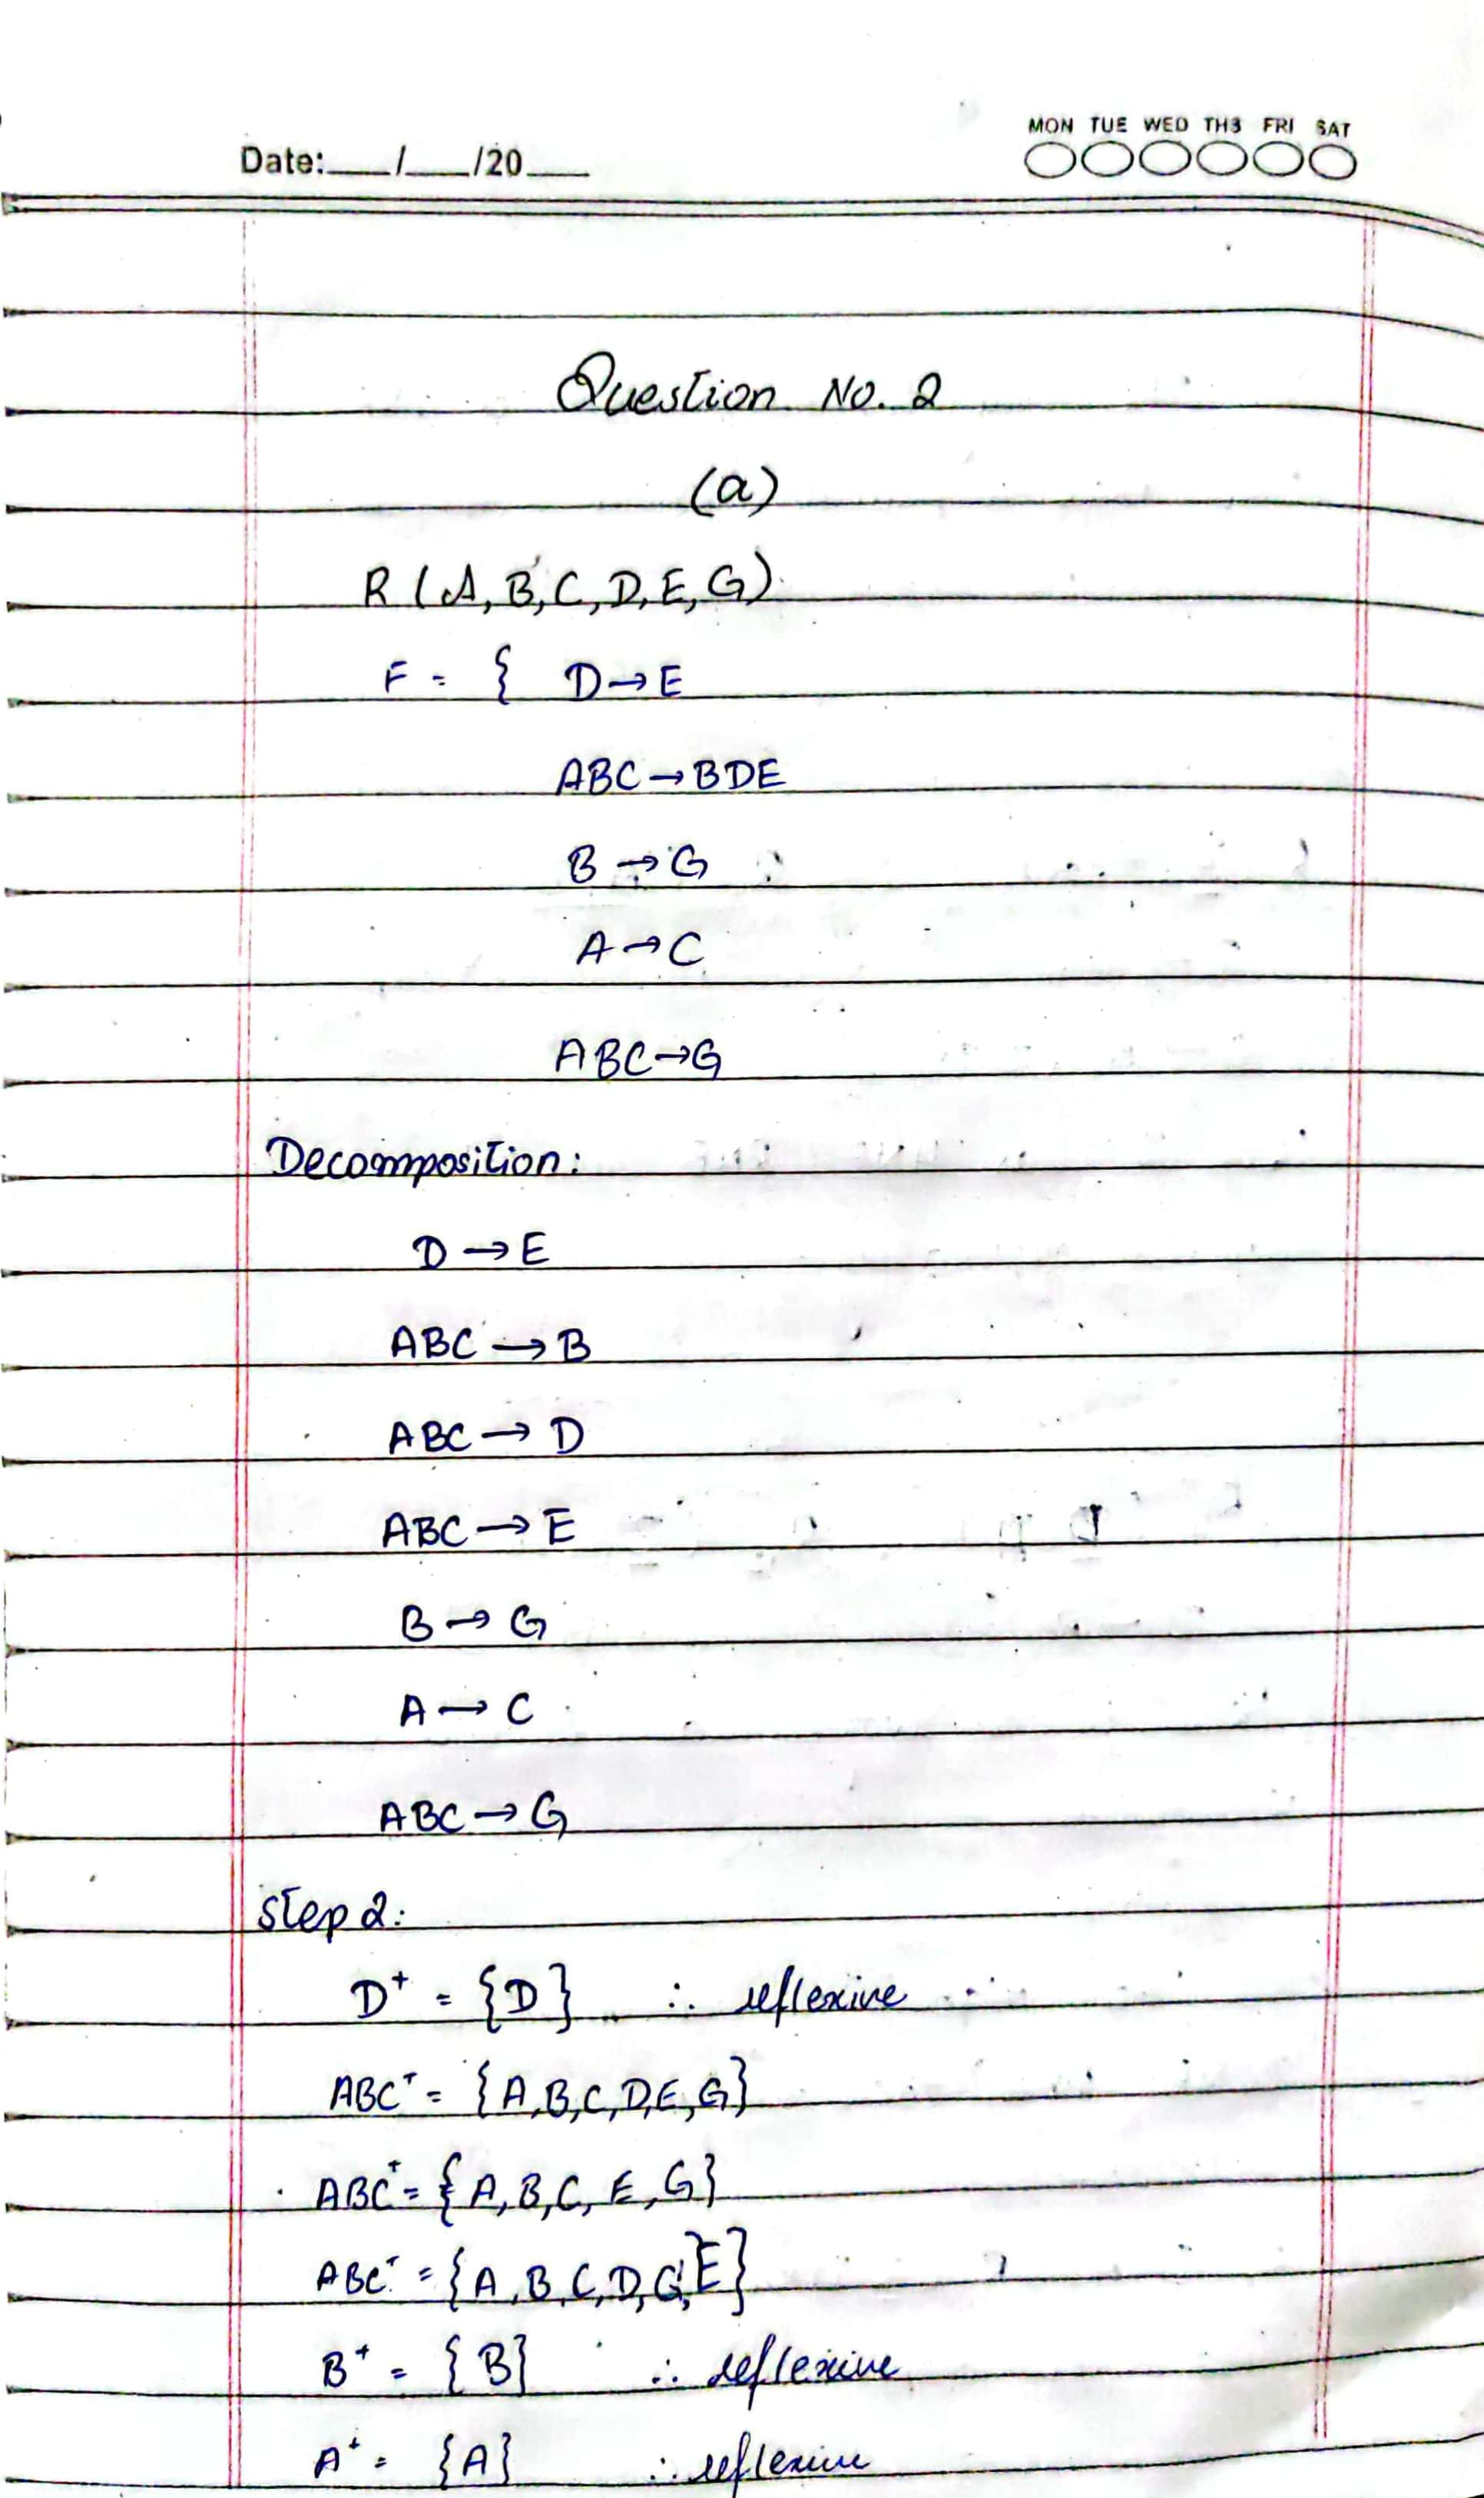 MON TUE WED THS FRI SAT
Date:___/___/20___
Question No. 2
(a)
R (A, B, C, D, E, G)
F = { D → E
ABC → BDE
B → G
A → C
ABC → G
Decomposition:
D → E
ABC → B
ABC → D
ABC → E
B → G
A → C
ABC → G
Step 2:
D⁺ = {D} ∴ reflexive
ABC⁺ = {A, B, C, D, E, G}
ABC⁺ = {A, B, C, E, G}
ABC⁺ = {A, B, C, D, G, E}
B⁺ = {B} ∴ reflexive
A⁺ = {A} ∴ reflexive